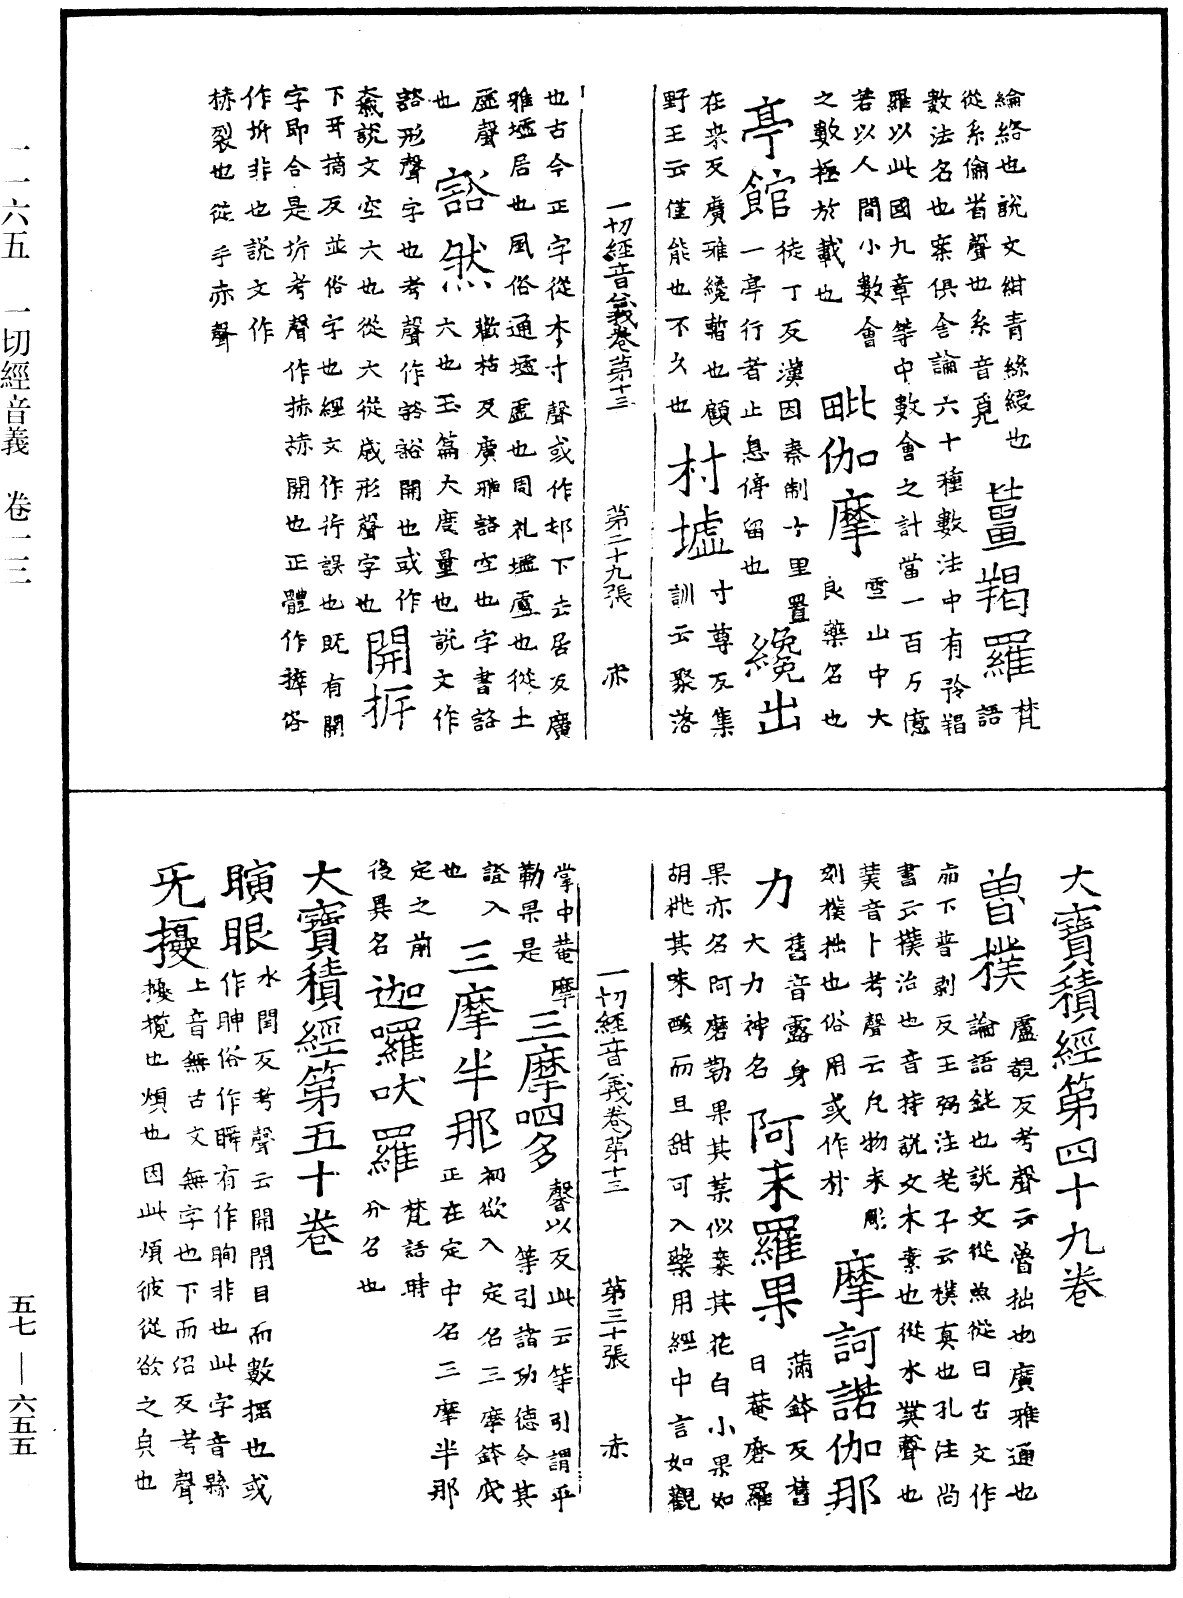 綸絡也說文紺青絲綬也𦽆羯羅梵語
從糸侖省聲也糸音覓
數法名也案俱舍論六十種數法中有矜羯
羅以此國九章等中數會之計當一百万億
若以人間小數會
之數極於載也
毗伽摩雪山中大良藥名也
亭館徒丁反漢因秦制十里置一亭行者止息停留也
纔出
在來反廣雅纔暫也顧
野王云僅能也不久也
村墟寸尊反集訓云聚落
一切經音義卷第十三 第二十九張 赤
也古今正字從木寸聲或作邨下去居反廣
雅墟居也風俗通墟虛也周礼墟廬也從土
虛聲也
豁然歡栝反廣雅豁空也字書豁大也玉篇大度量也說文作
豁形聲字也考聲作豁豁開也或作
奯說文空大也從大從歲形聲字也
開拆
下丑摘反並俗字也經文作行誤也既有開
字即合是坼考聲作捇捇開也正體作㩍俗
作拆非也說文作
捇裂也從手赤聲
大寶積經第四十九卷
曾樸
盧覩反考聲云魯拙也廣雅通也
論語鈍也說文從魚從日古文作
㡿下普剥反王弼注老子云樸真也孔注尚
書云樸治也音持說文木素也從木菐聲也
菐音卜考聲云凡物未彫
刻樸拙也俗用或作村
摩訶諾伽那
力
蒲鉢反舊
舊音露身
大力神名
阿末羅果
曰菴磨羅
果亦名阿磨勒果其葉似棗其花白小果如
胡桃其味酸而且甜可入藥用經中言如觀
一切經音義卷第十三 第三十張 赤
掌中菴摩
勒果是
三摩呬多馨以反此云等引謂平等引諸功德令其
證入也
三摩半那初欲入定名三摩鉢底正在定中名三摩半那
定之前
後異名
迦囉吠羅梵語時分名也
大寶積經第五十卷
瞚眼水閏反考聲云開閇目而數揺也或作眒俗作瞬有作眴非也此字音縣
无擾上音無古文無字也下而沼反考聲擾攪也煩也因此煩彼從欲之皃也
一一六五 一切經音義 卷一三
五七—六五五